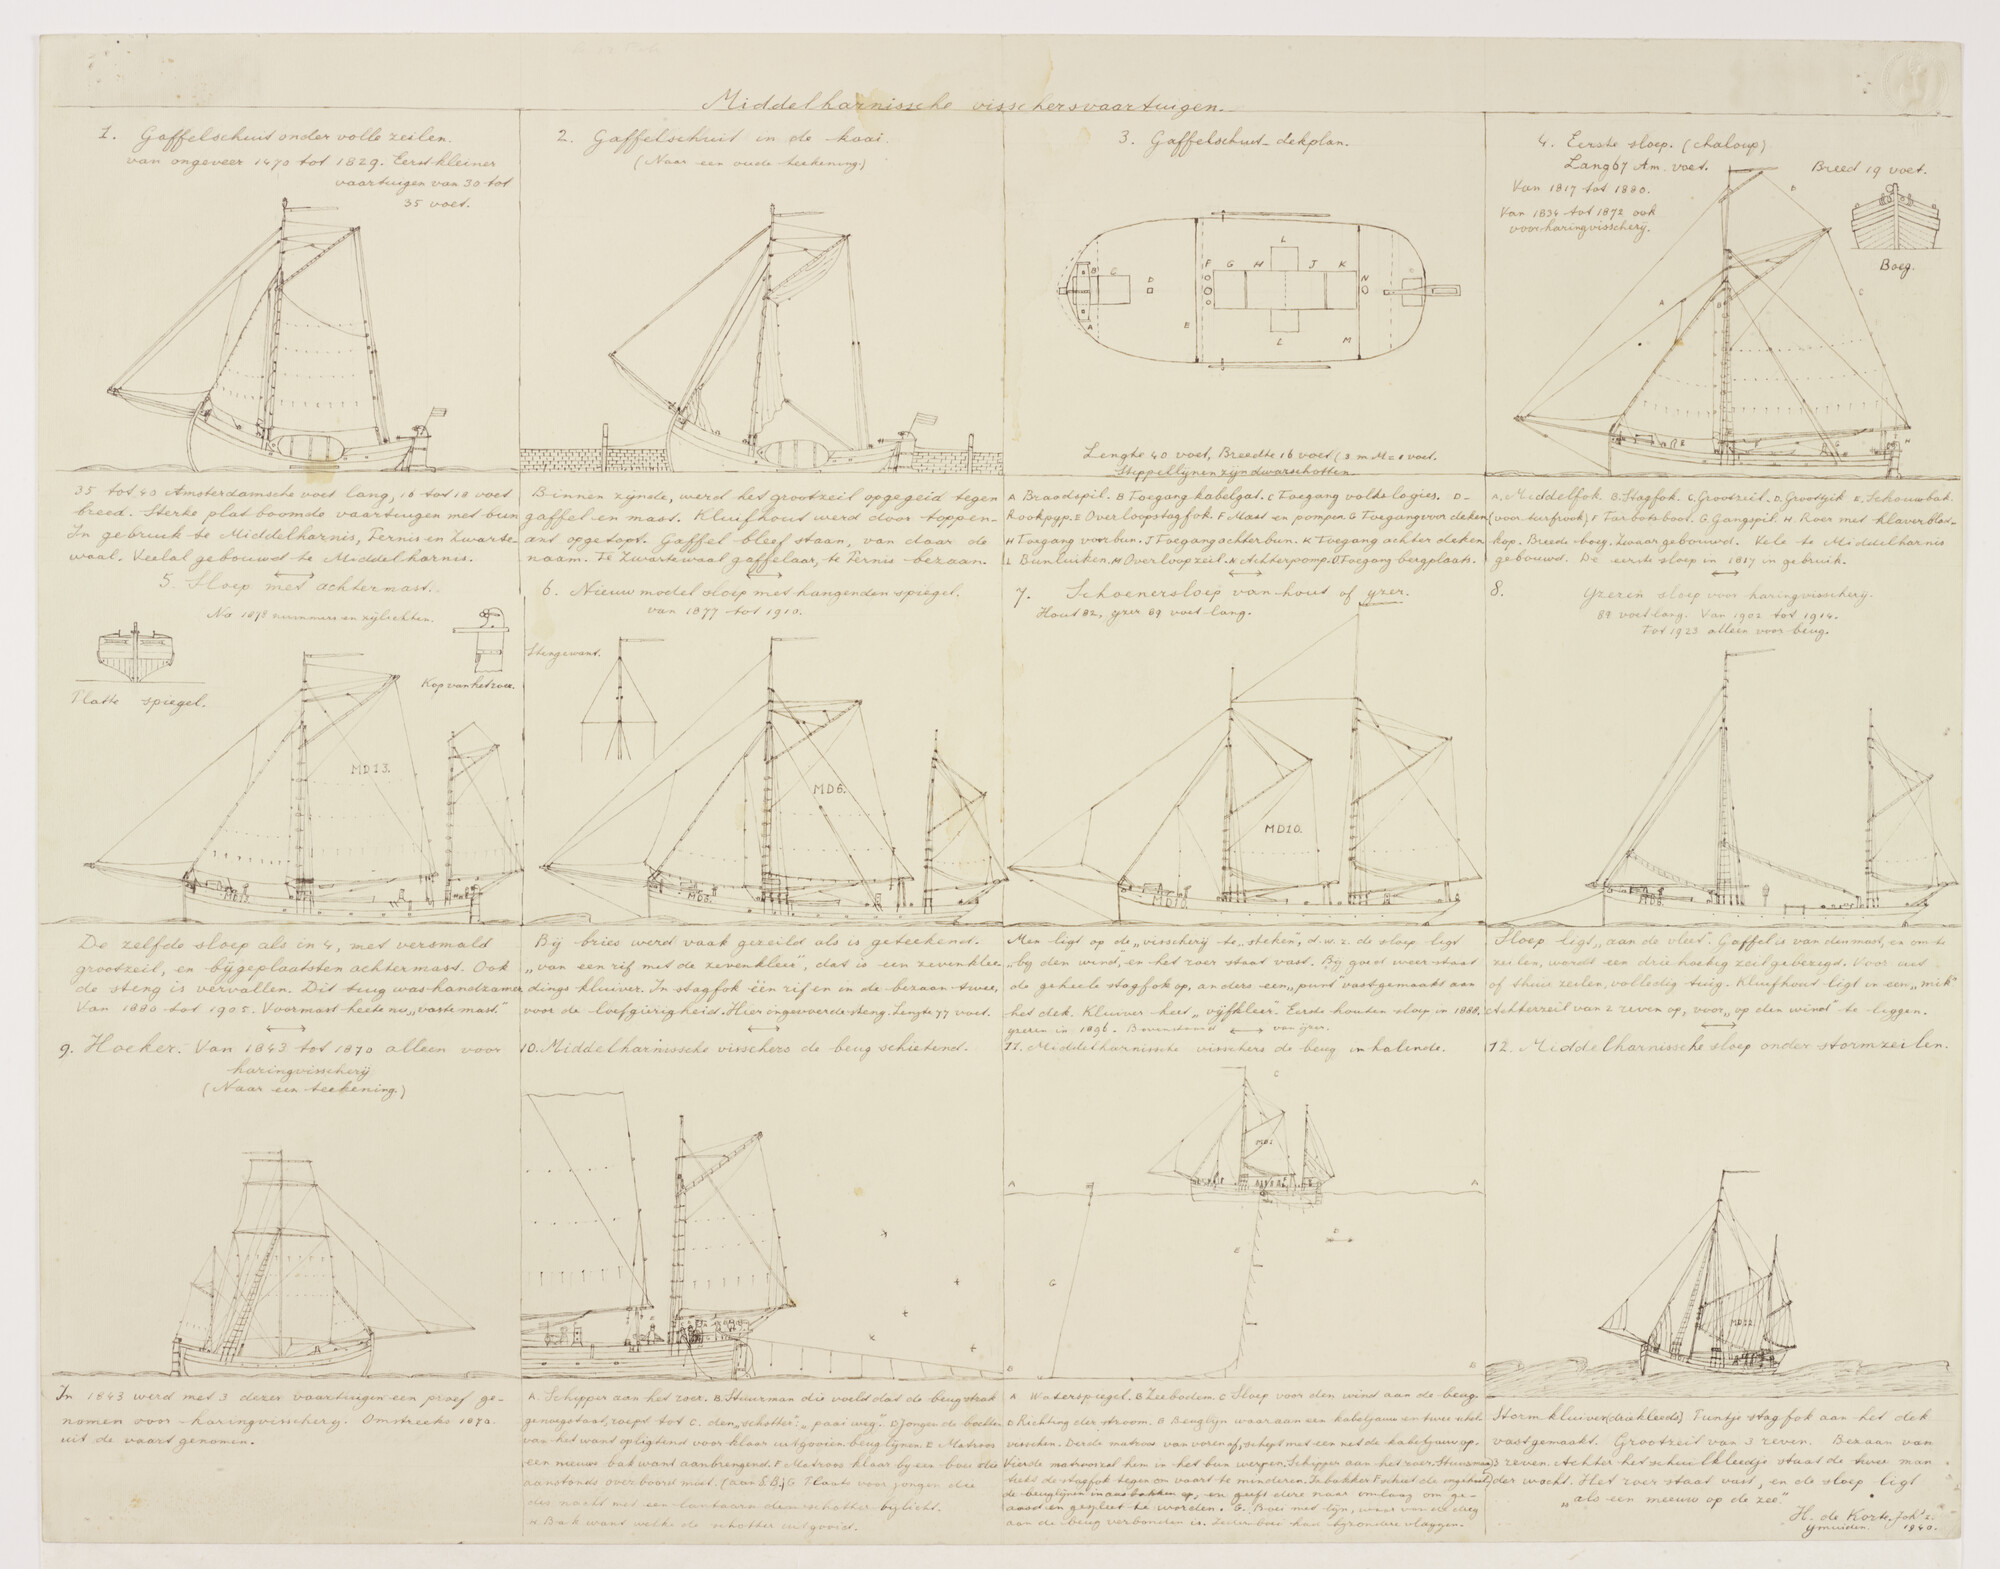 Middelharnissche visschersvaartuigen.
1. Gaffelschuit onder volle zeilen.
van ongeveer 1470 tot 1829. Eerst kleiner
vaartuigen van 30 tot
35 voet.
35 tot 40 Amsterdamsche voet lang, 16 tot 18 voet
breed. Sterke plat boomde vaartuigen met bun
In gebruik te Middelharnis, Pernis en Zwarte-
waal. Veelal gebouwd te Middelharnis.
2. Gaffelschuit in de kaai.
(Naar een oude teekening.)
Binnen zijnde, werd het grootzeil opgegeid tegen
gaffel en mast. Kluifhout werd door toppen-
ant opgetopt. Gaffel bleef staan, van daar de
naam. Te Zwartewaal gaffelaar, te Pernis bezaan.
3. Gaffelschuit-dekplan.
F G H L J K N
B C D
A E L M
Lengte 40 voet, Breedte 16 voet (3 m.M = 1 voet.
Stippellijnen zijn dwarschotten
A Braadspil. B Toegang kabelgat. C Toegang volkslogies. D-
Rookpijp. E Overloopstagfok. F Mast en pompen. G Toegang voor deken
H Toegang voorbun. J Toegang achterbun. K Toegang achter deken
L Bunluiken. M Overloopzeil. N Achterpomp. O Toegang bergplaats.
4. Eerste sloep. (chaloup)
Lang 67 Am. voet.
Breed 19 voet.
Van 1817 tot 1880.
Van 1834 tot 1872 ook
voor haringvisscherij.
Boeg.
A. Middelfok. B. Stagfok. C. Grootzeil. D. Grootpiek E. Schouwbak
(voor turfrook) F Tarbotsboot. G. Gangspil. H. Roer met klaverblad-
kop. Breede boeg. Zwaar gebouwd. Vele te Middelharnis
gebouwd. De eerste sloep in 1817 in gebruik.
5. Sloep met achtermast.
Na 1872 nummers en zijlichten.
Platte spiegel.
Kop van het roer.
MD 13.
De zelfde sloep als in 4, met versmald
grootzeil, en bijgeplaatsten achtermast. Ook
de steng is vervallen. Dit tuig was handzamer
Van 1880 tot 1905. Voormast heete nu "vaste mast."
6. Nieuw model sloep met hangenden spiegel.
van 1877 tot 1910.
Stengewant.
MD6.
MD6.
Bij bries werd vaak gezeild als is geteekend.
"van een rif met de zevenklee", dat is een zevenklee
dings kluiver. In stagfok één rif en in de bezaan twee,
voor de loefgierigheid. Hier ongevoerde steng. Lengte 77 voet.
7. Schoenersloep van hout of ijzer.
Hout 82, ijzer 89 voet lang.
MD10.
Men ligt op de "visscherij te "steken", d.w.z. de sloep ligt
"bij den wind, en het roer staat vast. Bij goed weer staat
de geheele stagfok op, anders een "punt" vastgemaakt aan
het dek. Kluiver heet "vijfkleer". Eerste houten sloep in 1888,
ijzeren in 1896.
8. IJzeren sloep voor haringvisscherij.
89 voet lang. Van 1902 tot 1914.
Tot 1923 alleen voor beug.
Sloep ligt "aan de vleet". Gaffel is van den mast, en om te
zeilen, wordt een driehoekig zeil gebezigd. Voor uit
of thuis zeilen, volledig tuig. Kluifhout ligt in een "mik"
Achterzeil van 2 reven op, voor "op den wind" te liggen.
9. Hoeker. Van 1843 tot 1870 alleen voor
haringvisscherij
(Naar een teekening.)
In 1843 werd met 3 dezer vaartuigen een proef ge-
nomen voor haringvisscherij. Omstreeks 1870.
uit de vaart genomen.
10. Middelharnissche visschers de beug schietend.
A. Schipper aan het roer. B. Stuurman die voelt dat de beug strak
genoeg staat, roept tot C. den "schotter": "paai weg." D Jongen de bochten
van het want opligtend voor klaar uitgooien beuglijnen. E Matroos
een nieuw bak want aanbrengend. F Matroos klaar bij een boei die
aanstonds overboord mat. (aan S.B.) G Plaats voor jongen die
des nachts met een lantaarn den schotter bijlicht.
H. Bak want welke de schotter uitgooit.
11. Middelharnissche visschers de beug inhalende.
C
MD1.
A A
D
E
G
B B
A Waterspiegel. B Zeebodem. C Sloep voor den wind aan de beug.
D Richting der stroom. E Beuglijn waaraan een kabeljauw en twee schel-
visschen. Derde matroos van voren af, schept met een net de kabeljauw op.
Vierde matroos zal hem in het bun werpen. Schipper aan het roer. Stuurman
trekt de stagfok tegen om vaart te minderen. Inbakker F schiet de ongeklaarde
de beuglijnen in ans bakken op, en geeft deze naar omlaag om ge-
aasd en gespleet te worden. G. Boei met lijn, waar van de dreg
aan de beug verbonden is. Iedere boei had bijzondere vlaggen.
12. Middelharnissche sloep onder stormzeilen.
Stormkluiver (driekleeds) Puntje stagfok aan het dek
vastgemaakt. Grootzeil van 3 reven. Bezaan van
3 reven. Achter het schuilkleedje staat de twee man
der wacht. Het roer staat vast, en de sloep ligt
"als een meeuw op de zee."
H. de Korte, Joh z.
IJmuiden. 1940.